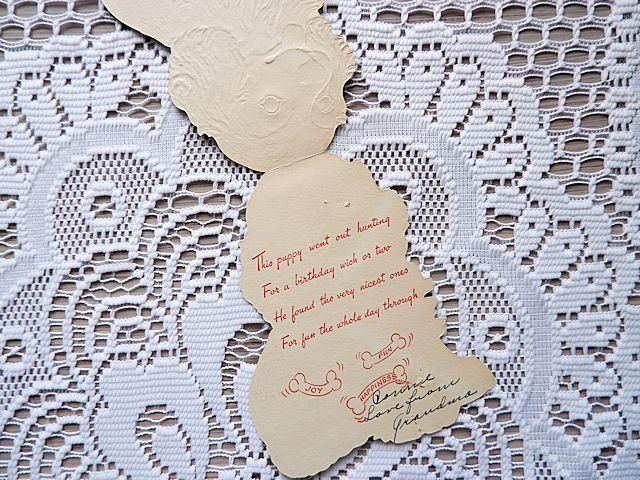 This puppy went out hunting
For a birthday wish or two
He found the very nicest ones
For fun the whole day through
FUN
JOY
HAPPINESS
Connie
Love from
Grandma